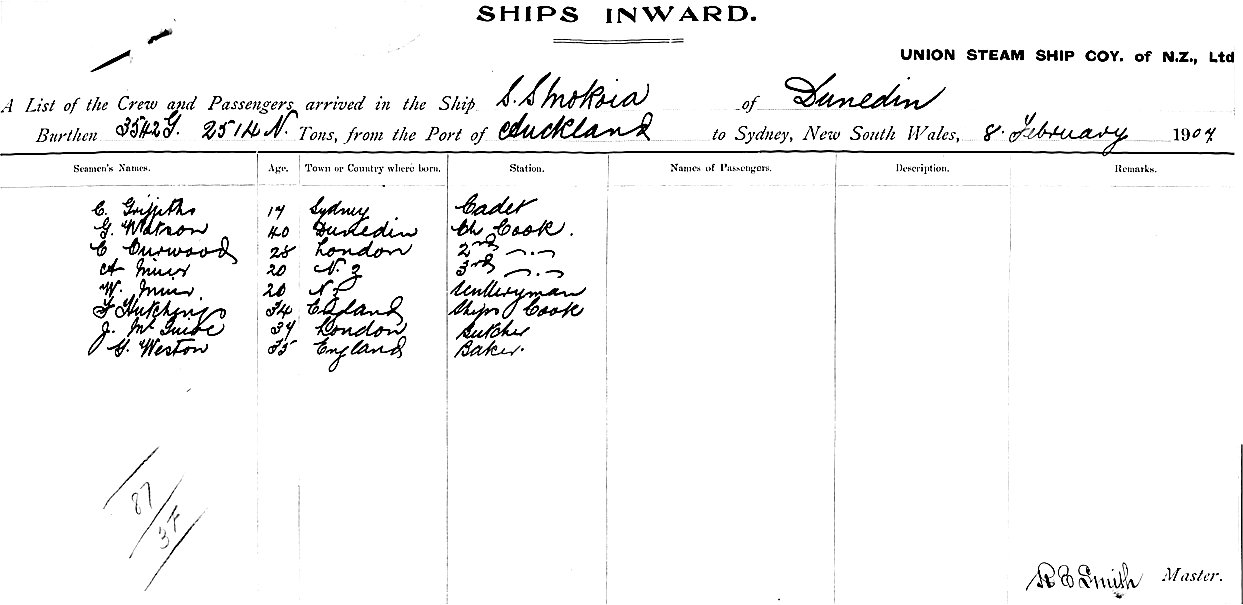 SHIPS INWARD.
UNION STEAM SHIP COY. of N.Z., Ltd
A List of the Crew and Passengers arrived in the Ship S.S Mokoia of Dunedin
Burthen 3542 G. 2514 N. Tons, from the Port of Auckland to Sydney, New South Wales, 8. February 1907
Seamen's Names. Age. Town or Country where born. Station. Names of Passengers. Description. Remarks.
C. Griffiths 17 Sydney Cadet
G. Watson 40 Dunedin Ch Cook.
C Curwood 28 London 2nd —.—
A Muir 20 N. Z 3rd —.—
W. Muir. 20 N Z Sculleryman
F Hutchings 34 England Ships Cook
J. McGuire 37 London Butcher
G. Weston 35 England Baker.
87
R E Smith Master.